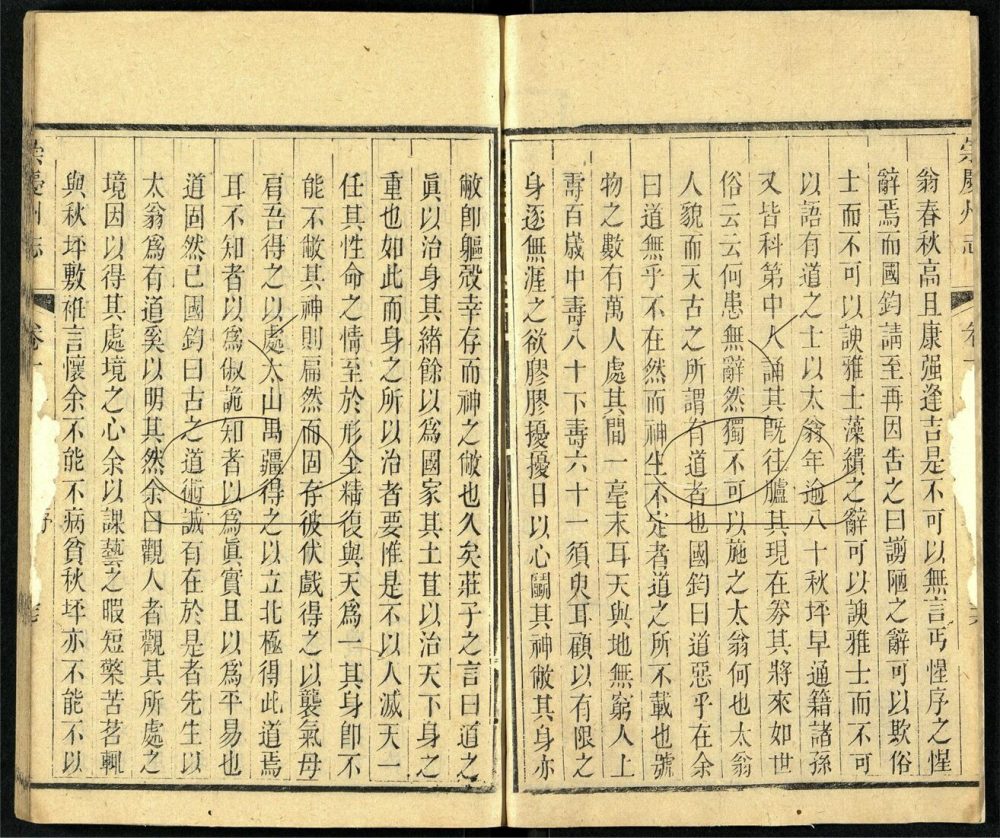 崇慶州志
卷十
翁春秋高且康强逢吉是不可以無言丐惺序之惺
辭焉而國鈞請至再因告之曰謭陋之辭可以欺俗
士而不可以諛雅士藻繢之辭可以諛雅士而不可
以語有道之士以太翁年逾八十秋坪早通籍諸孫
又皆科第中人誦其旣往臚其現在券其將來如世
俗云云何患無辭然獨不可以施之太翁何也太翁
人貌而天古之所謂有道者也國鈞曰道惡乎在余
曰道無乎不在然而神生不定者道之所不載也號
物之數有萬人處其閒一毫末耳天與地無窮人上
壽百歲中壽八十下壽六十一須臾耳顧以有限之
身逐無涯之欲膠膠擾擾日以心鬭其神敝其身亦
敝卽軀殼幸存而神之敝也久矣莊子之言曰道之
眞以治身其緒餘以爲國家其土苴以治天下身之
重也如此而身之所以治者要惟是不以人滅天一
任其性命之情至於形全精復與天爲一其身卽不
能不敝其神則扁然而固存彼伏戲得之以襲氣母
肩吾得之以處太山禺疆得之以立北極得此道焉
耳不知者以爲俶詭知者以爲眞實且以爲平易也
道固然已國鈞曰古之道術誠有在於是者先生以
太翁爲有道奚以明其然余曰觀人者觀其所處之
境因以得其處境之心余以課藝之暇短檠苦茗輒
與秋坪敷袵言懷余不能不病貧秋坪亦不能不以
崇慶州志
卷十
序